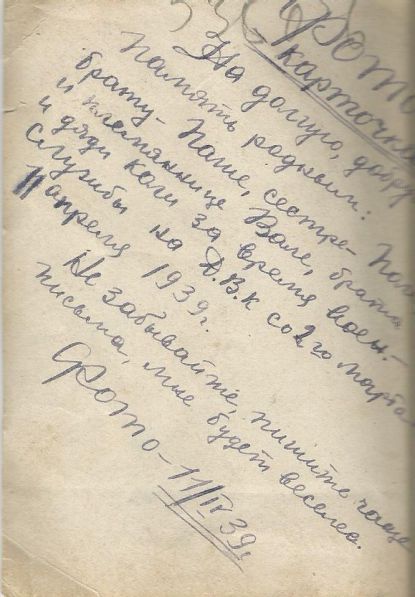 Фото
карточка
На долгую, добру
память родным:
брату - Паше, сестре -
и племяннице Вале, брата
и дяди Коли за время воен-
службы на Д.В.К со 2го марта
11 апреля 1939 г.
Не забывайте, пишите чаще
письма, мне будет веселее.
Фото - 11/IV 39 г.